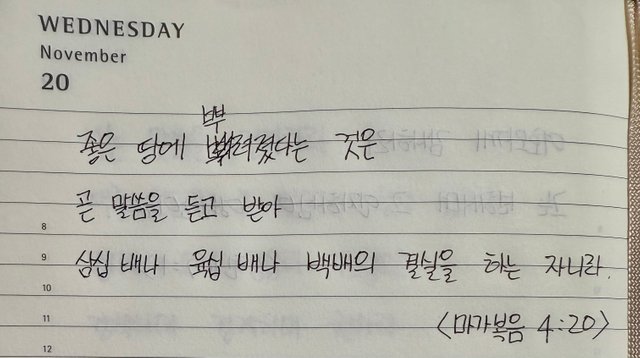 WEDNESDAY
November
20
좋은 땅에 뿌려졌다는 것은
곧 말씀을 듣고 받아
8
9 삼십 배나 육십 배나 백배의 결실을 하는 자니라.
10
11 <마가복음 4:20>
12